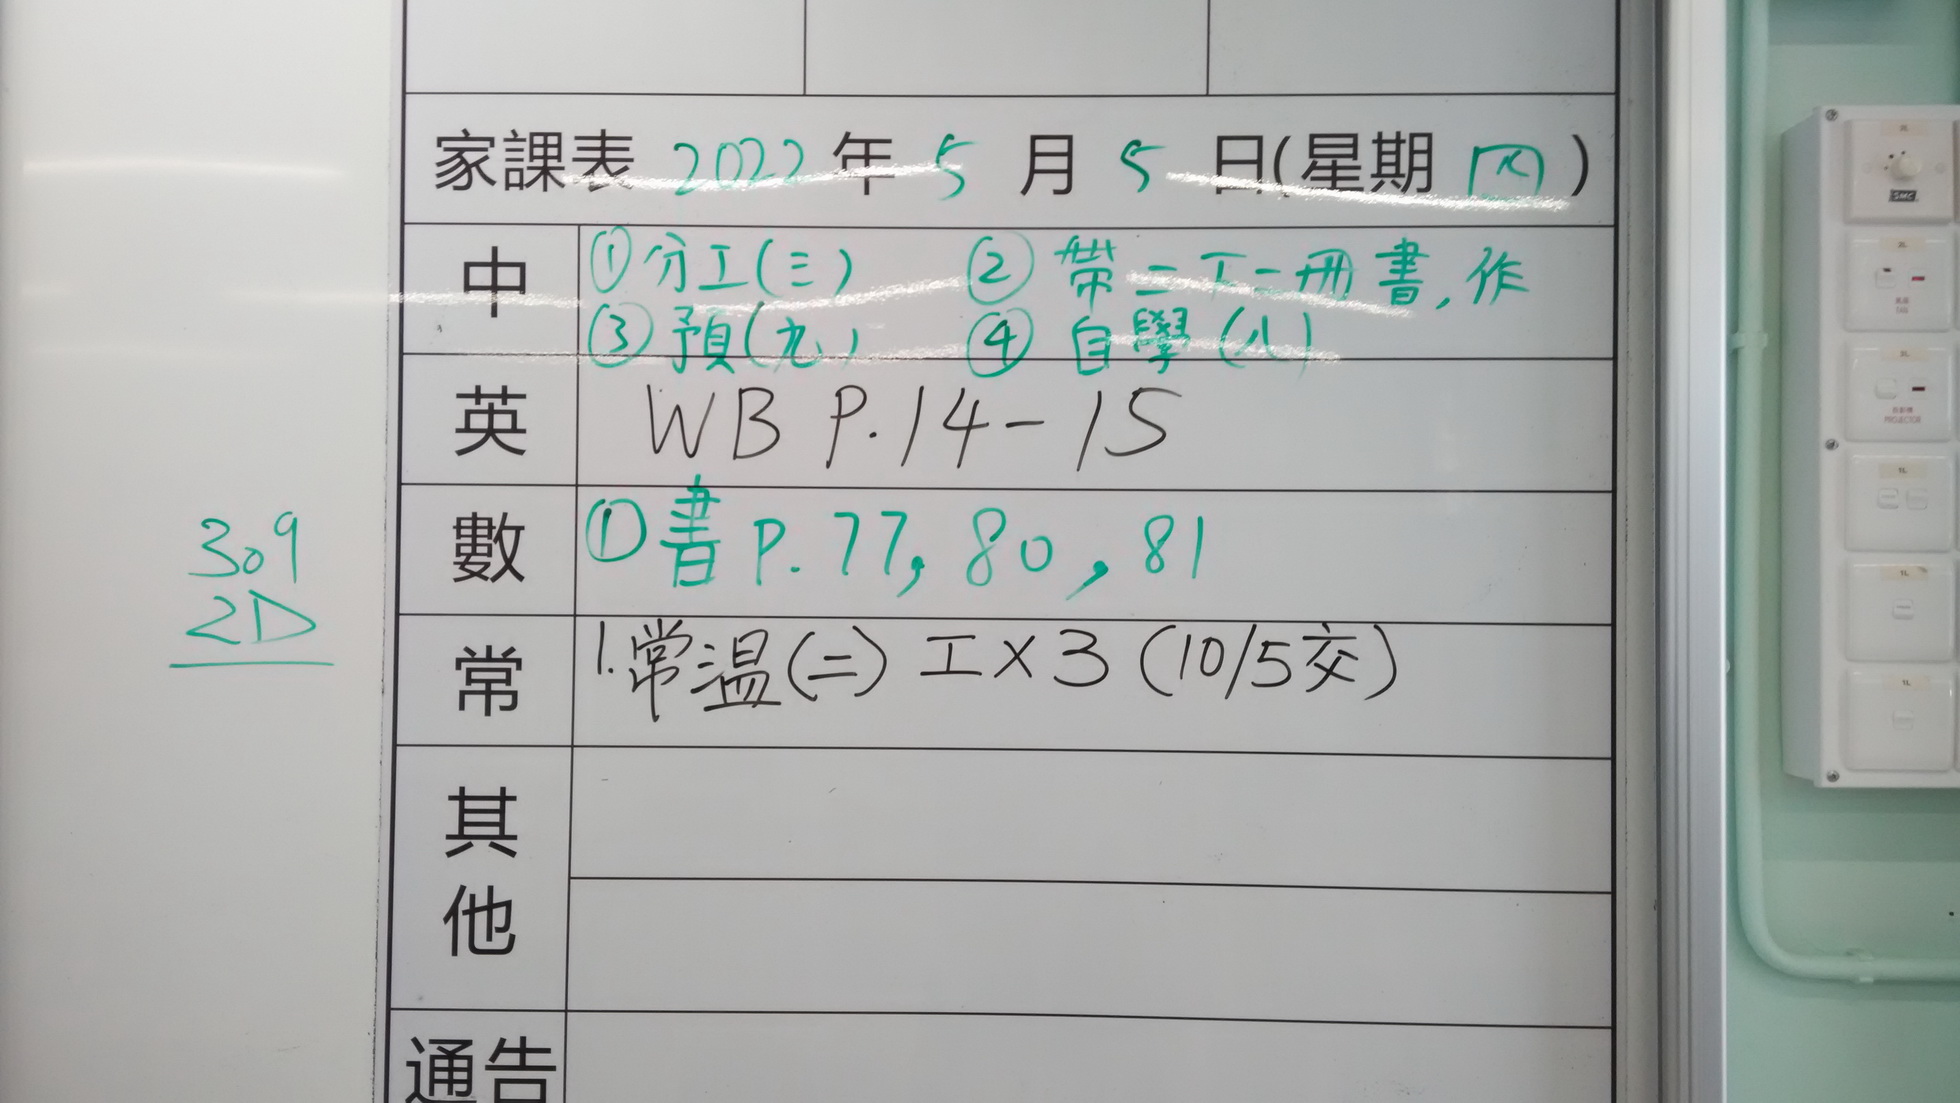 家課表 2022 年 5 月 5 日(星期 四)
中
①分工(三) ②帶二下一冊書,作
③預(九) ④自學(八)
英 WB P.14-15
數 ①書 P.77, 80, 81
309
2D
常 1.常温(二) 工×3 (10/5交)
其他
通告
SMC
FAN
PROJECTOR